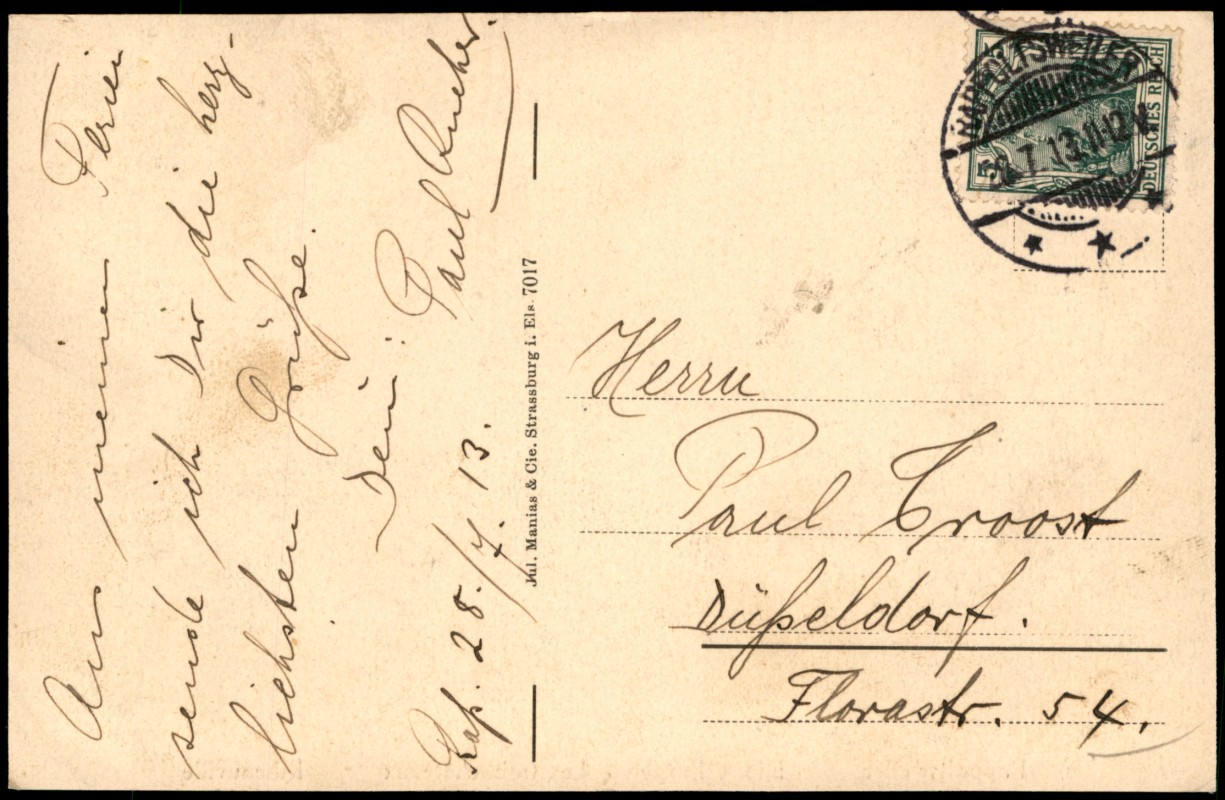 Aus meinen Ferien
sende ich Dir die herz-
lichsten Grüße.
Dein Paul
Rap. 28./7. 13.
Jul. Manias & Cie. Strassburg i. Els. 7017
RAPPOLTSWEILER
28.7.13.11-12
5
DEUTSCHES REICH
Herrn
Paul Troost
Düßeldorf.
Florastr. 54.